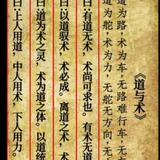 《道与术》
道为路，术为车，无路难行车，无车
道为舵，术为力，无舵无方向，无
曰：有道无术，术尚可求也。有术无道
曰：以道驭术，术必成。离道之术，术
曰：道为术之灵，术为道之体。以道统
曰：上人用道，中人用术，下人用力。